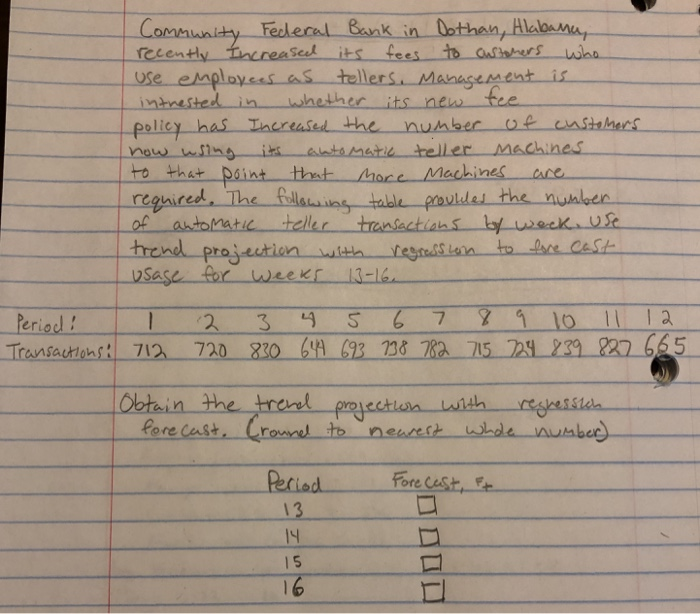 Community Federal Bank in Dothan, Alabama,
recently Increased its fees to customers who
use employees as tellers. Management is
intrested in whether its new fee
policy has Increased the number of customers
now using its automatic teller machines
to that point that more Machines are
required. The following table provides the number
of automatic teller transactions by week. Use
trend projection with regression to fore cast
usage for weeks 13-16.
Period: 1 2 3 4 5 6 7 8 9 10 11 12
Transactions: 712 720 830 644 693 738 782 715 724 839 827 665
Obtain the trend projection with regression
forecast. (round to nearest whole number)
Period Forecast, Ft
13
14
15
16